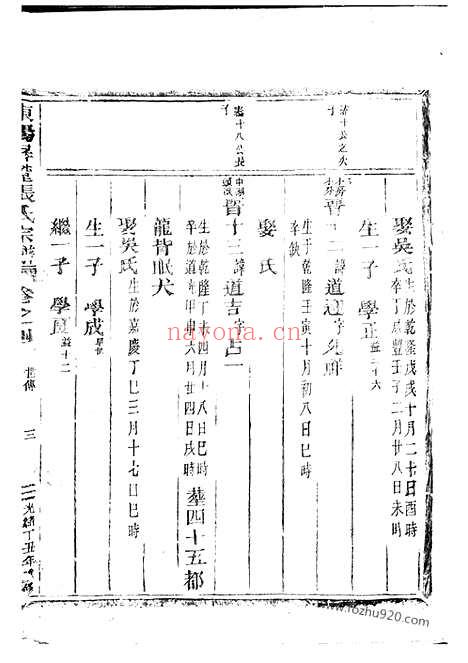 娶吳氏生於乾隆戊戌十月二十日酉時
卒丁咸豐壬子二月廿八日未時
生一子 學正益三十六
晋十二諱道廷字
生于乾隆壬寅十月初八日巳時
卒缺
娶氏
晋十三諱道吉字占一
生於乾隆丁未四月十八日巳時
卒於道光甲申六月廿四日戌時 葬四十五都
龍背眠犬
娶吳氏生於嘉慶丁巳三月十七日巳時
生一子 學成早世
繼一子 學 益十二
東陽 張氏宗譜 卷之 世傳 三 光緒丁丑年
navona.cn
www.rofzhu920.com